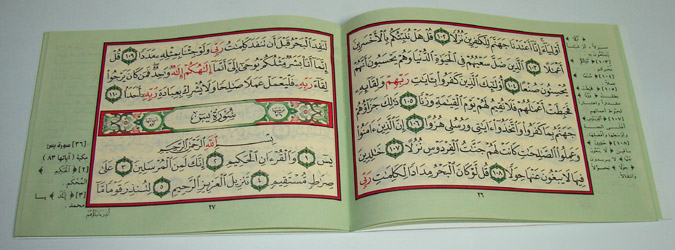 أَوْلِيَآءَ إِنَّآ أَعْتَدْنَا جَهَنَّمَ لِلْكَٰفِرِينَ نُزُلًا ١٠٢ قُلْ هَلْ نُنَبِّئُكُم بِٱلْأَخْسَرِينَ
أَعْمَٰلًا ١٠٣ ٱلَّذِينَ ضَلَّ سَعْيُهُمْ فِى ٱلْحَيَوٰةِ ٱلدُّنْيَا وَهُمْ يَحْسَبُونَ أَنَّهُمْ
يُحْسِنُونَ صُنْعًا ١٠٤ أُو۟لَٰٓئِكَ ٱلَّذِينَ كَفَرُوا۟ بِـَٔايَٰتِ رَبِّهِمْ وَلِقَآئِهِۦ
فَحَبِطَتْ أَعْمَٰلُهُمْ فَلَا نُقِيمُ لَهُمْ يَوْمَ ٱلْقِيَٰمَةِ وَزْنًا ١٠٥ ذَٰلِكَ جَزَآؤُهُمْ
جَهَنَّمُ بِمَا كَفَرُوا۟ وَٱتَّخَذُوٓا۟ ءَايَٰتِى وَرُسُلِى هُزُوًا ١٠٦ إِنَّ ٱلَّذِينَ ءَامَنُوا۟
وَعَمِلُوا۟ ٱلصَّٰلِحَٰتِ كَانَتْ لَهُمْ جَنَّٰتُ ٱلْفِرْدَوْسِ نُزُلًا ١٠٧ خَٰلِدِينَ
فِيهَا لَا يَبْغُونَ عَنْهَا حِوَلًا ١٠٨ قُل لَّوْ كَانَ ٱلْبَحْرُ مِدَادًا لِّكَلِمَٰتِ رَبِّى
٢٦
لَنَفِدَ ٱلْبَحْرُ قَبْلَ أَن تَنفَدَ كَلِمَٰتُ رَبِّى وَلَوْ جِئْنَا بِمِثْلِهِۦ مَدَدًا ١٠٩ قُلْ
إِنَّمَآ أَنَا۠ بَشَرٌ مِّثْلُكُمْ يُوحَىٰٓ إِلَىَّ أَنَّمَآ إِلَٰهُكُمْ إِلَٰهٌ وَٰحِدٌ فَمَن كَانَ يَرْجُوا۟
لِقَآءَ رَبِّهِۦ فَلْيَعْمَلْ عَمَلًا صَٰلِحًا وَلَا يُشْرِكْ بِعِبَادَةِ رَبِّهِۦٓ أَحَدًۢا ١١٠
سُورَةُ يسٓ
بِسْمِ ٱللَّهِ ٱلرَّحْمَٰنِ ٱلرَّحِيمِ
يسٓ ١ وَٱلْقُرْءَانِ ٱلْحَكِيمِ ٢ إِنَّكَ لَمِنَ ٱلْمُرْسَلِينَ ٣ عَلَىٰ
صِرَٰطٍ مُّسْتَقِيمٍ ٤ تَنزِيلَ ٱلْعَزِيزِ ٱلرَّحِيمِ ٥ لِتُنذِرَ قَوْمًا مَّآ
[٣٦] سورة يس
مكية (آياتها ٨٣)
[٢] ﴿ الْحَكِيمِ ﴾
المُحْكَم
[٣] ﴿ إِنَّكَ ﴾ يا
محمد
٢٧